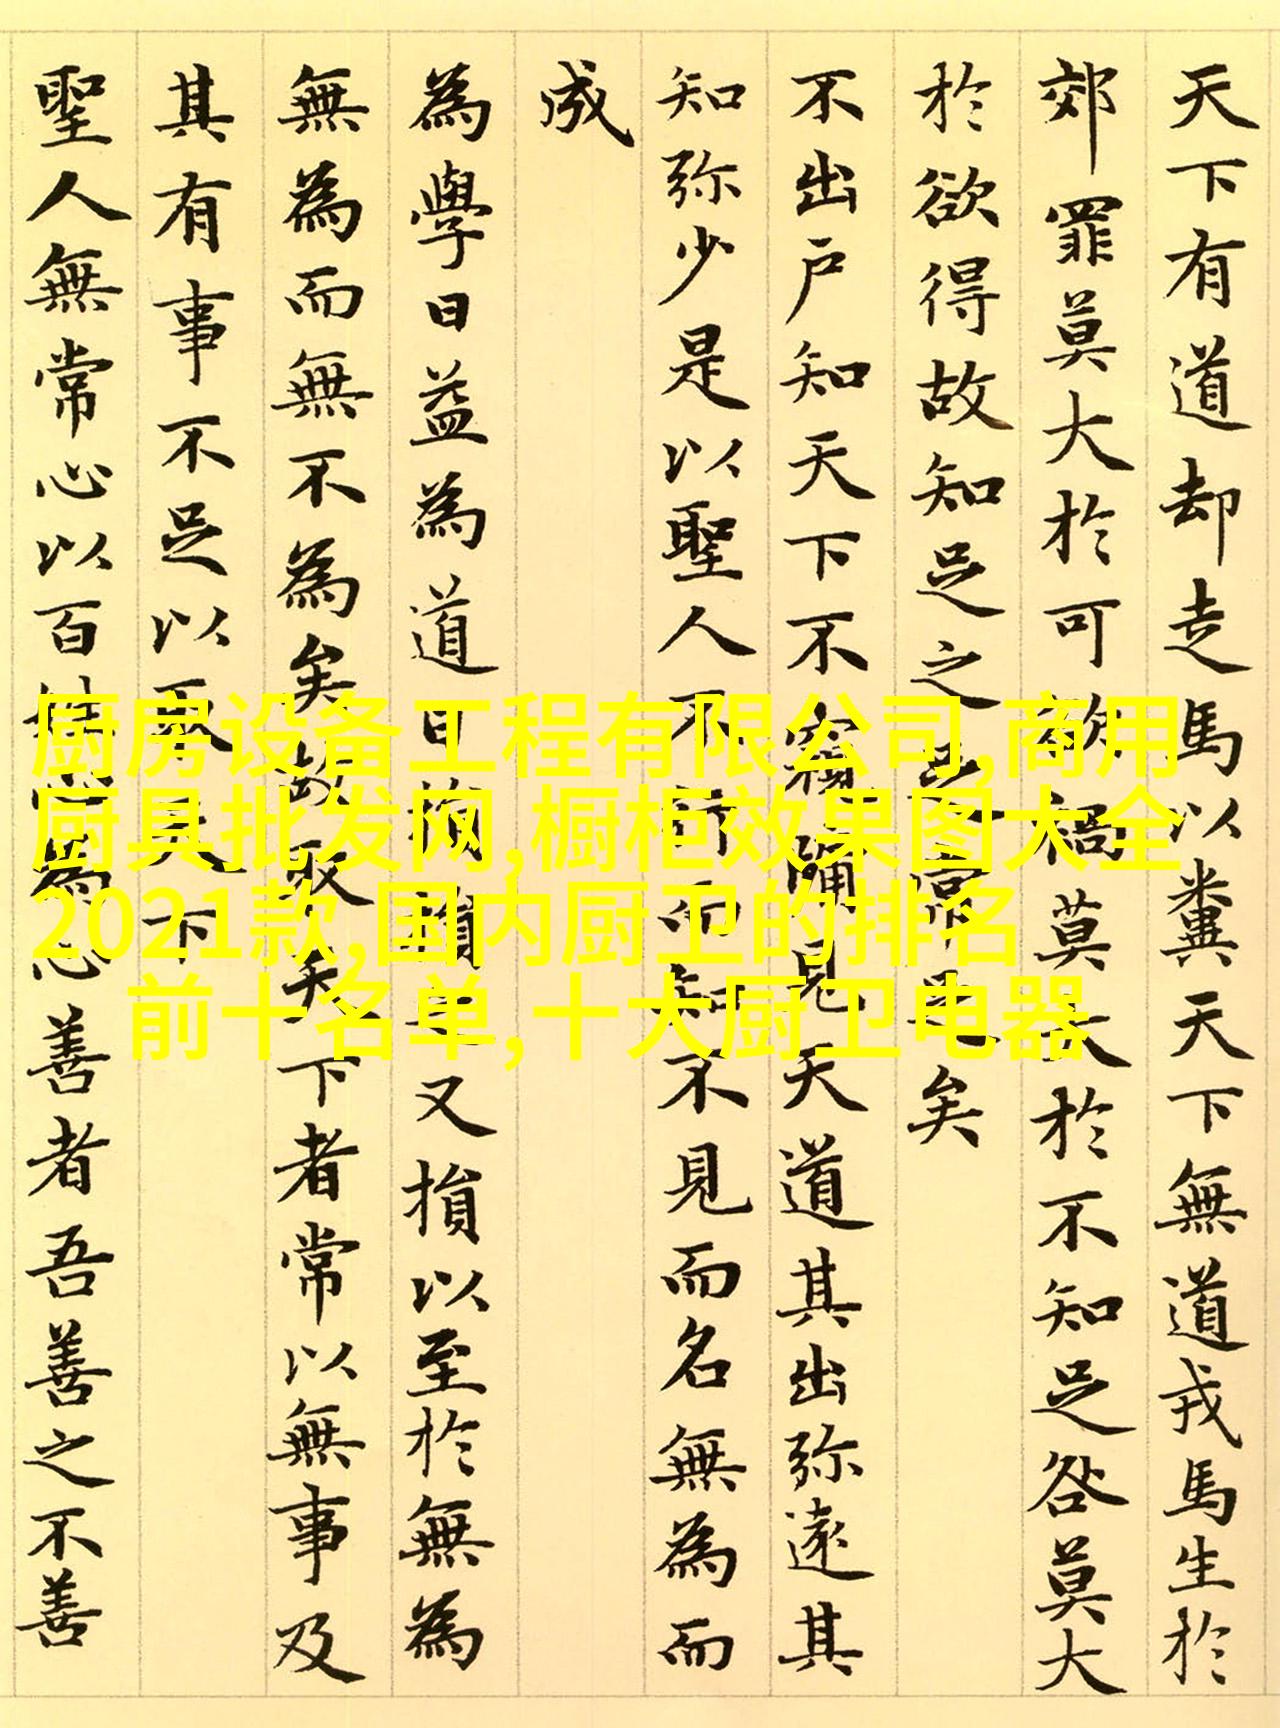 天下有道却走馬以糞天下無道戎馬生於
郊罪莫大於可欲禍莫大於不知足咎莫大
於欲得故知足之足常足矣
不出戶知天下不窺牖見天道其出弥遠其
知弥少是以聖人不行而知不見而名無為而
成
為學日益為道日損損之又損以至於無為
無為而無不為矣故取天下者常以無事及
其有事不足以取天下
聖人無常心以百姓心為心善者吾善之不善
厨房设备工程有限公司,商用
厨具批发网,橱柜效果图大全
2021款,国内厨卫的排名
前十名单,十大厨卫电器